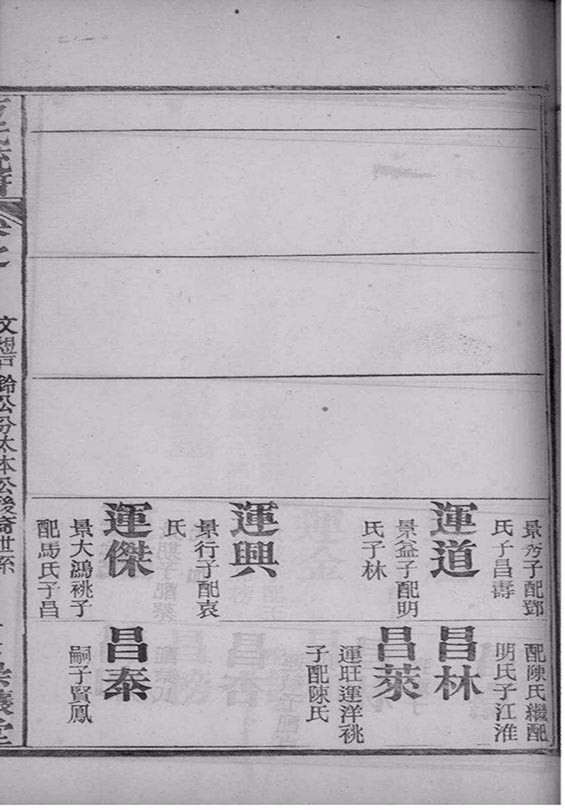 景秀子配鄧
氏子昌壽
運道
景益子配明
氏子林
運興
景行子配袁
氏
運傑
景大鴻祧子
配馬氏子昌
配陳氏繼配
明氏子江淮
昌林
昌萊
運旺運洋祧
子配陳氏
昌泰
嗣子賢鳳
鈴公分太本公後裔世系